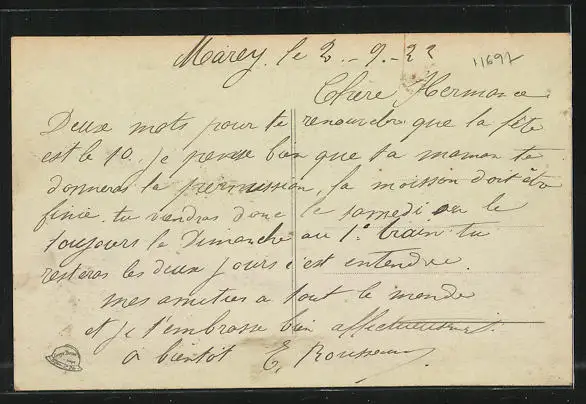 Marey. le 2 - 9 - 22
11697
Chère Hermance
Deux mots pour te renouveler que la fête
est le 10. je pense bien que ta maman te
donneras la permission, la moisson doit être
finie. tu viendras donc le samedi ou le
toujours le Dimanche au 1e train tu
resteras les deux jours c'est entendue.
mes amities a tout le monde
et je t'embrasse bien affectueusement.
a bientot E, Rousseau